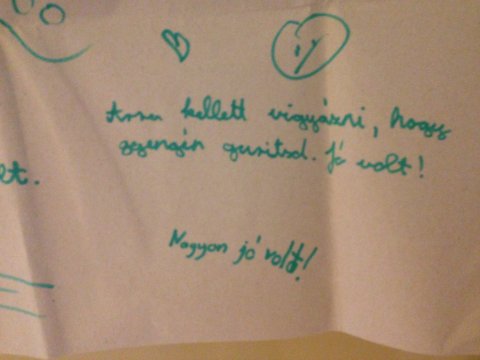 Arra kellett vigyázni, hogy
gyengén gurítsd. Jó volt!
lt.
Nagyon jó volt!